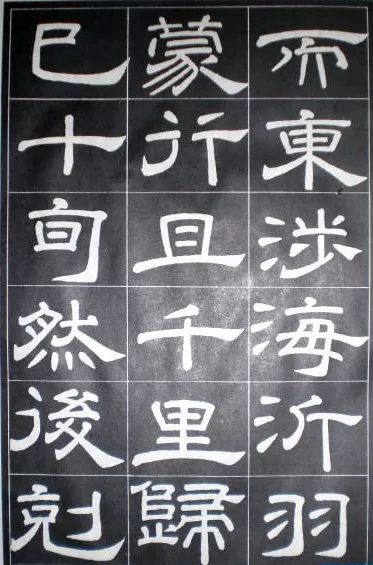 而東涉海沂羽
蒙行且千里歸
已十旬然後剋